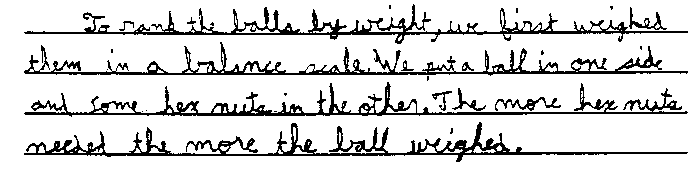 To rank the balls by weight, we first weighed
them in a balance scale. We put a ball in one side
and some hex nuts in the other. The more hex nuts
needed the more the ball weighed.